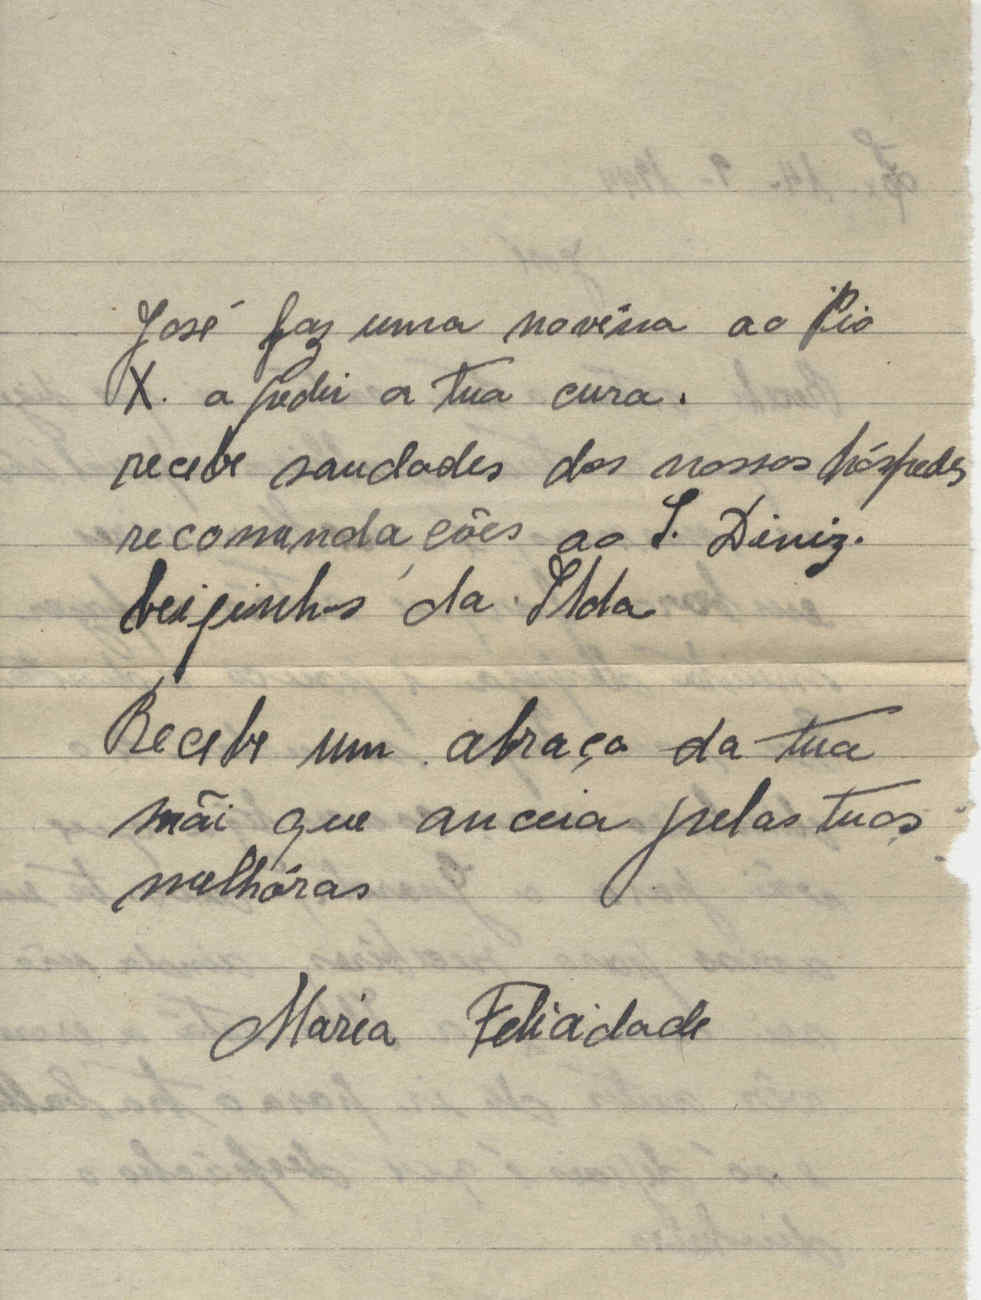 José faz uma novêna ao Pio
X. a pedir a tua cura.
recebe saudades dos nossos hóspedes
recomendações ao S. Diniz.
beijinhos da Ilda
Recebe um abraço da tua
mãi que anceia pelas tuas
melhóras
Maria Felicidade